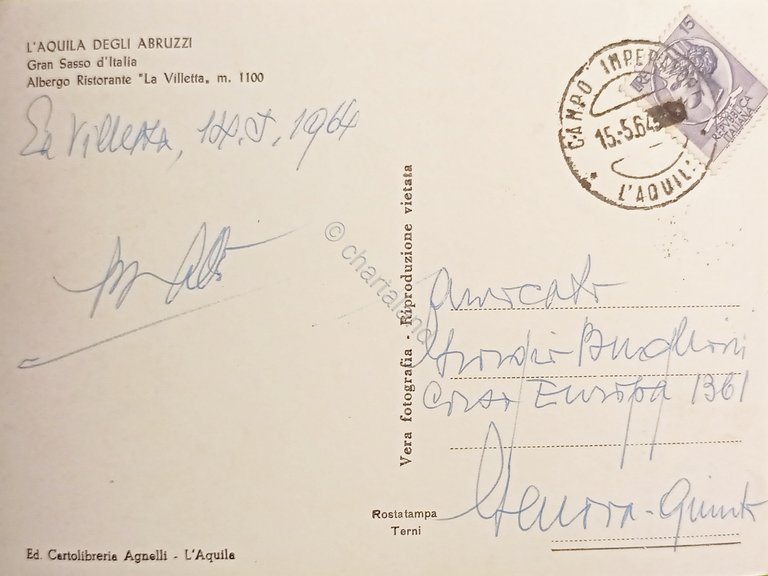 L'AQUILA DEGLI ABRUZZI
Gran Sasso d'Italia
Albergo Ristorante "La Villetta„ m. 1100
La Villetta, 14.5.1964
15
LIRE
REPUBBLICA
ITALIANA
CAMPO IMPERATORE
15.-5.64
L'AQUIL
© chartaland
Vera fotografia - Riproduzione vietata
Avvocato
Giorgio
Corso Europa 1361
Genova-Quinto
Rostatampa
Terni
Ed. Cartolibreria Agnelli - L'Aquila